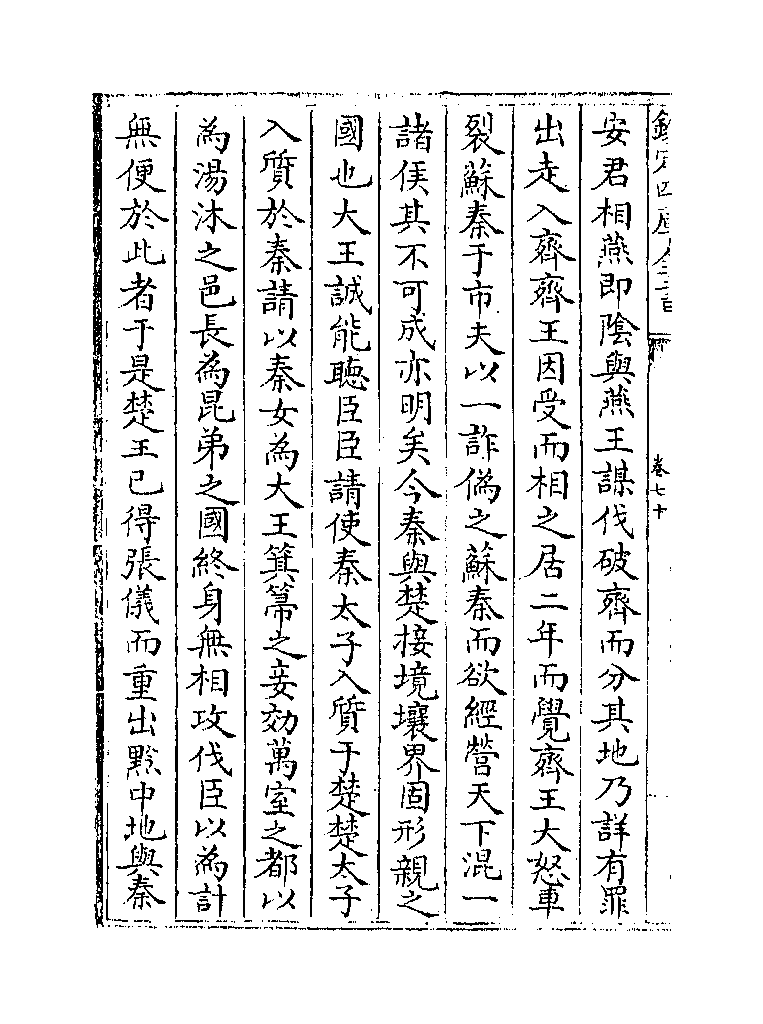 欽定四庫全書
卷七十
安君相燕即陰與燕王謀伐破齊而分其地乃詳有罪
出走入齊齊王因受而相之居二年而覺齊王大怒車
裂蘇秦于市夫以一詐偽之蘇秦而欲經營天下混一
諸侯其不可成亦明矣今秦與楚接境壤界固形親之
國也大王誠能聴臣臣請使秦太子入質于楚楚太子
入質於秦請以秦女為大王箕帚之妾効萬室之都以
為湯沐之邑長為昆弟之國終身無相攻伐臣以為計
無便於此者于是楚王已得張儀而重出黔中地與秦